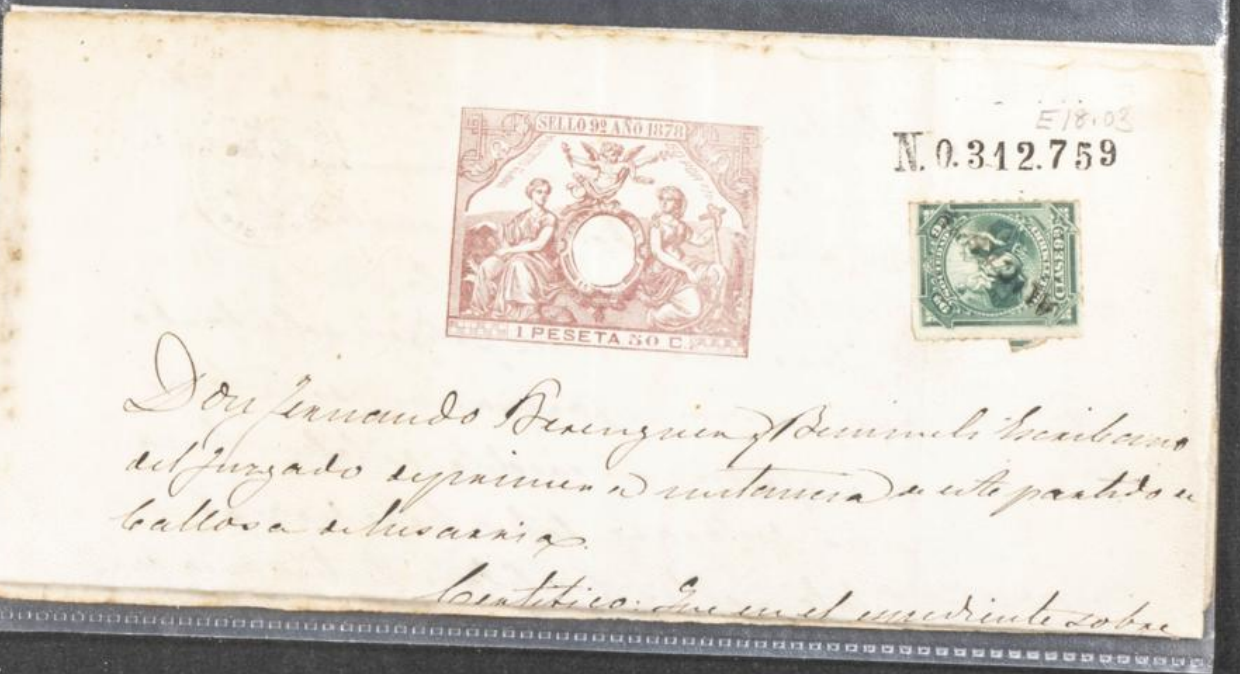 SELLO 9º AÑO 1878
1 PESETA 50 C.
E18.03
N. 0.312.759
CLASE 9ª
Don Fernando Berenguer y Escribano
del Juzgado de primera instancia de este partido de
Callosa de Ensarria.
Certifico: Que en el expediente sobre